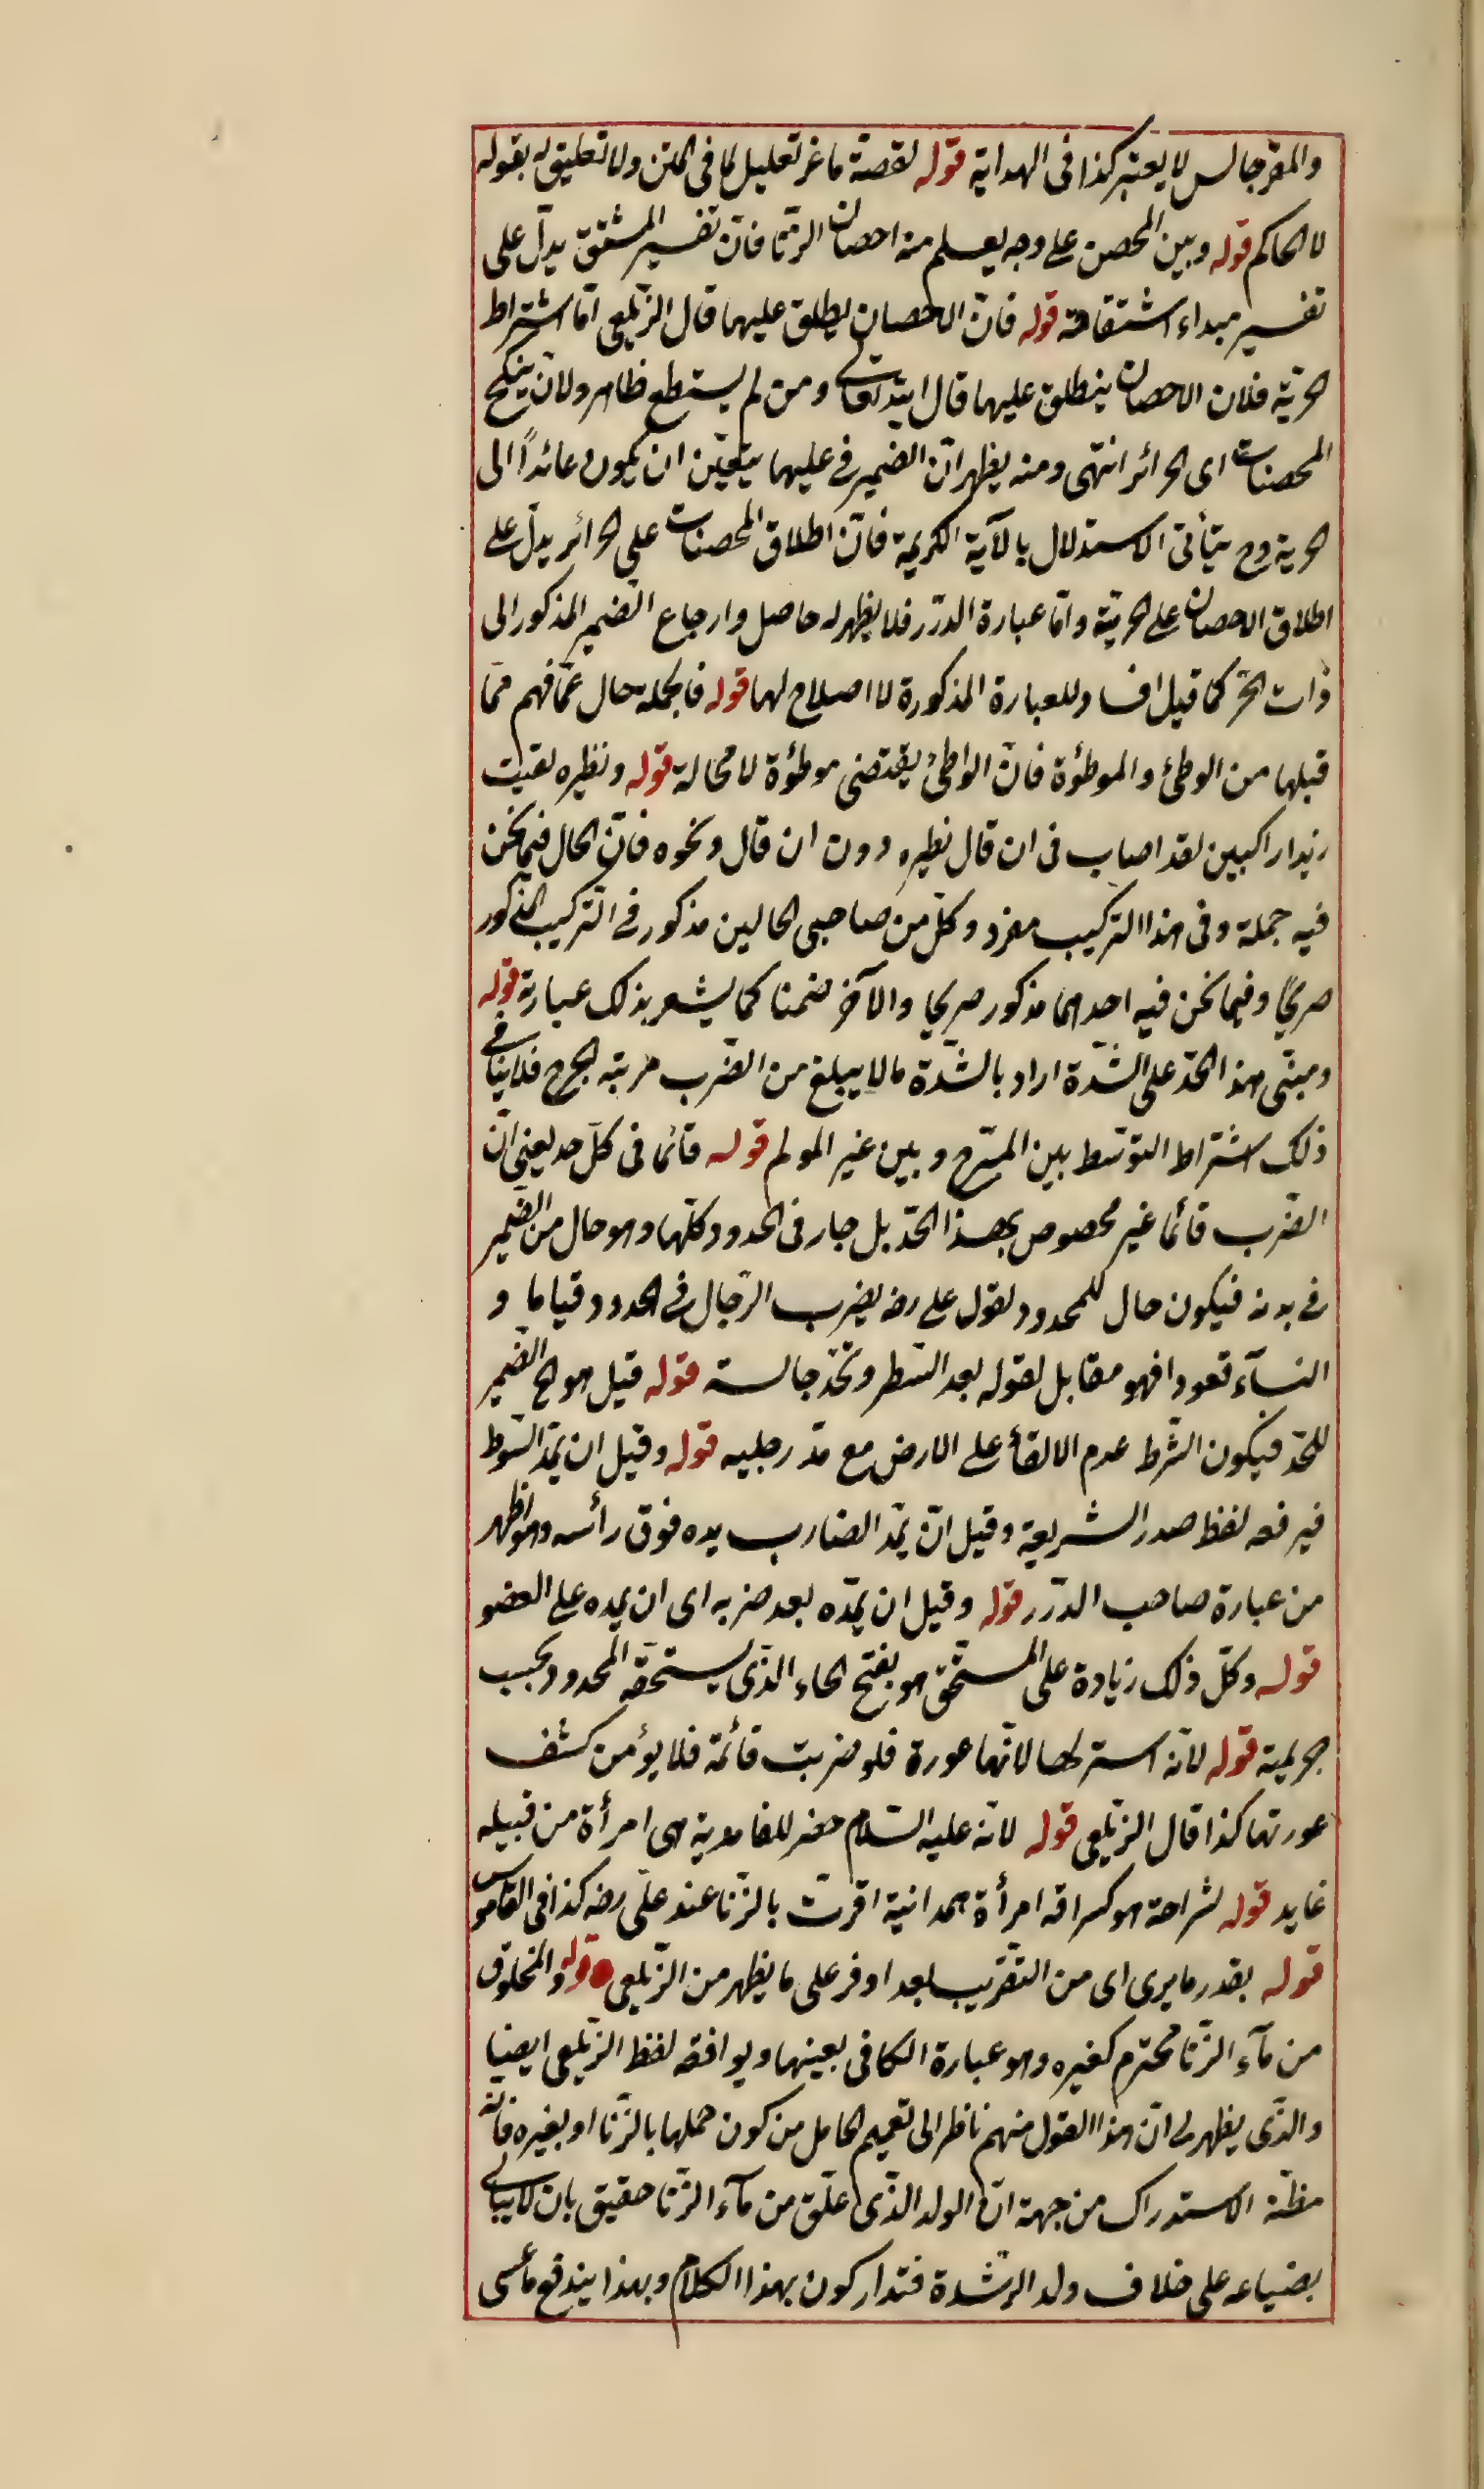 والمقر جالس لا يعتبر كذا فى الهداية قوله لقصة ماعز تعليل لما فى المتن ولا تعليق له بقوله
لا الحاكم قوله وبين المحصن على وجه يعلم منه احصان الزنا فانّ تفسير المشتق يدلّ على
تفسير مبداء اشتقاقه قوله فانّ الاحصان يطلق عليهما قال الزيلعى امّا اشتراط
الحرّية فلان الاحصان ينطلق عليهما قال الله تعالى ومن لم يستطع ظاهر ولان ينكح
المحصنات اى الحرائر انتهى ومنه يظهر انّ الضمير فى عليهما يتعيّن ان يكون عائداً الى
الحرية وح يتأتى الاستدلال بالآية الكريمة فانّ اطلاق المحصنات على الحرائر يدلّ على
اطلاق الاحصان على الحرّية وامّا عبارة الدّرر فلا يظهر له حاصل وارجاع الضمير المذكور الى
ذات الحرّ كما قيل افساد للعبارة المذكورة لا اصلاح لها قوله فالجملة حال عمّا فهم ممّا
قبلها من الوطئ والموطؤة فانّ الواطئ يقتضى موطؤة لا محالة قوله ونظيره لقيت
زيدا راكبين لقد اصاب فى ان قال نظيره دون ان قال ونحوه فانّ الحال فيما نحن
فيه جملة وفى هذا التركيب مفرد وكلّ من صاحبى الحالين مذكور فى التركيب المذكور
صريحًا وفيما نحن فيه احدهما مذكور صريحا والآخر ضمنا كما يشعر بذلك عبارته قوله
ومبنى هذا الحدّ على الشدّة اراد بالشدّة ما لا يبلغ من الضّرب مرتبة الجرح فلا ينافى
ذلك اشتراط التوسّط بين المبرّح وبين غير المولم قوله قائما فى كلّ حد يعنى انّ
الضّرب قائما غير مخصوص بهذا الحدّ بل جار فى الحدود كلّها وهو حال من الضّمير
فى بدنه فيكون حال للمحدود لقول على رضه يضرب الرّجال فى الحدود قياما و
النسآء قعودا فهو مقابل لقوله بعد السّطر وتحدّ جالسة قوله قيل هو ح الضّمير
للحدّ فيكون الشرط عدم الالقأ على الارض مع مدّ رجليه قوله وقيل ان يمدّ السّوط
فيرفعه لفظ صدر الشريعة وقيل انّ يمدّ الضارب يده فوق رأسه وهو اظهر
من عبارة صاحب الدّرر قوله وقيل ان يمدّه بعد ضربه اى ان يمده على العضو
قوله وكلّ ذلك زيادة على المستحق هو بفتح الحاء الذّى يستحقّه المحدود بحسب
جريمته قوله لانّه استر لها لانّها عورة فلو ضربت قائمة فلا يؤمن كشف
عورتها كذا قال الزّيلعى قوله لانّه عليه السّلام حفر للغامدية هى امرأة من قبيله
غايد قوله لشراحة هو كسراقه امرأة همدانية اقرّت بالزّنا عند علىّ رضه كذا فى القاموس
قوله بقدر ما يرى اى من التغريب بعد اوفر على ما يظهر من الزّيلعى قوله والمخلوق
من مآء الزّنا محترم كغيره وهو عبارة الكافى بعينها ويوافقه لفظ الزّيلعى ايضا
والذّى يظهر لى انّ هذا القول منهم ناظر الى تعميم الحامل من كون حملها بالزّنا او بغيره فانّه
مظنّة الاستدراك من جهة انّ الولد الذّى علّق من مآء الزّنا حقيق بان لا يبالى
بضياعه على خلاف ولد الرشدة فتداركون بهذا الكلام وبهذا يندفع ما عسى